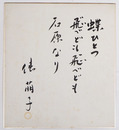 蝶ひとつ
飛べども飛べども
石原なり
俵萌子